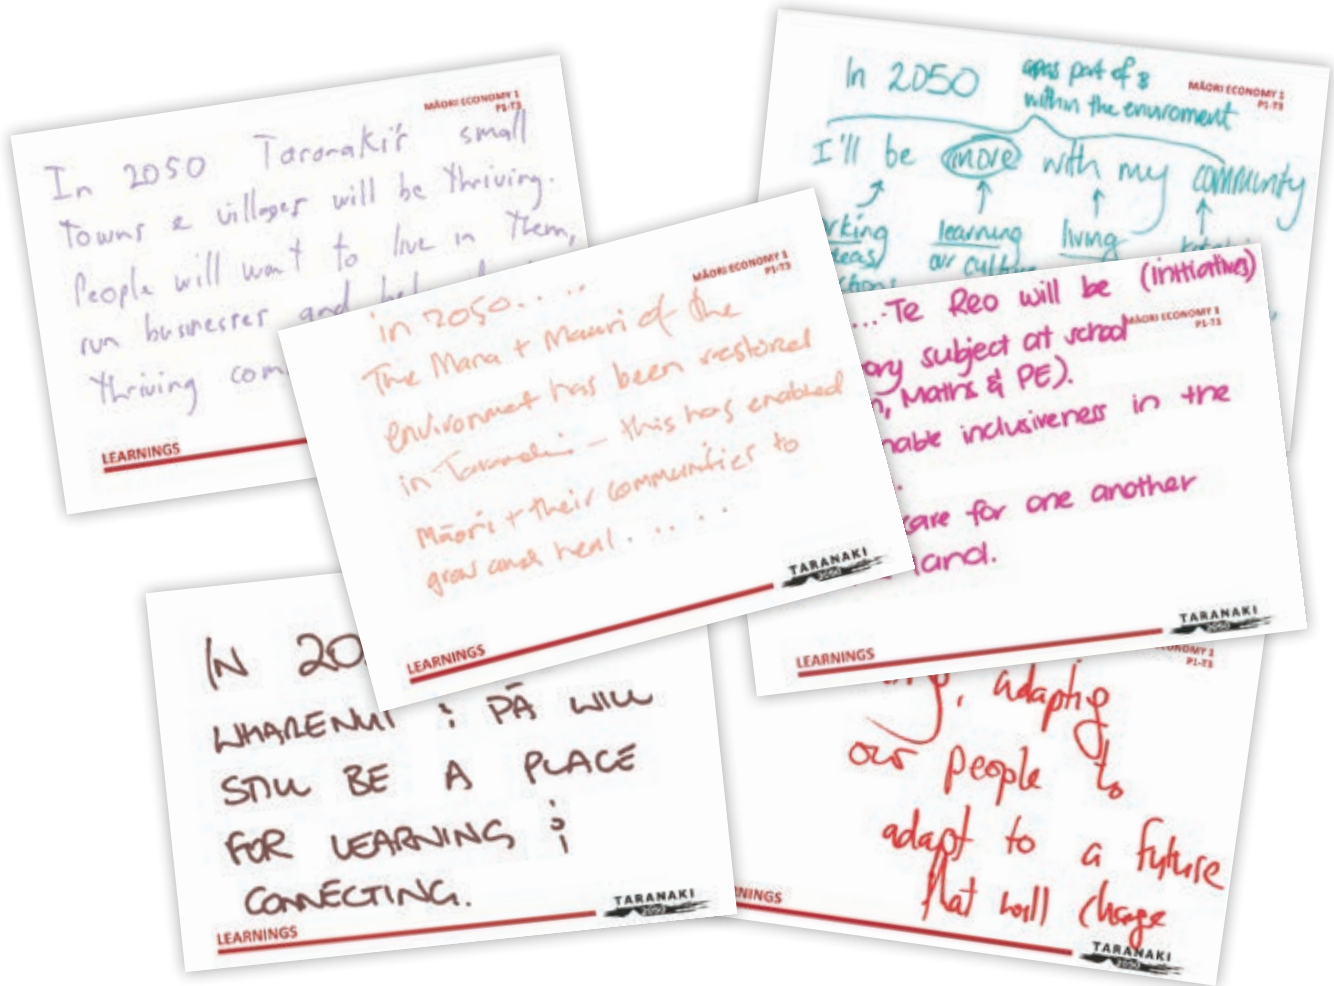 MĀORI ECONOMY 1
P1-T3
In 2050 Taranaki's small
Towns & villages will be thriving.
People will want to live in them,
run businesses and
thriving com
LEARNINGS
In 2050
as part of &
within the enviroment
MĀORI ECONOMY 1
P1-T3
I'll be more with my community
rking
learning
living
eas)
our culture
MĀORI ECONOMY 1
P1-T3
in 2050.....
The Mana + Mauri of the
environmet has been restored
in Taranaki – this has enabled
Māori + their communities to
grow and heal . . . . .
TARANAKI
2050
LEARNINGS
....Te Reo will be (initiatives)
MĀORI ECONOMY 1
P1-T3
ory subject at school
, Maths & PE).
nable inclusiveness in the
care for one another
land.
TARANAKI
2050
LEARNINGS
IN 20
WHARENUI & PĀ WILL
STILL BE A PLACE
FOR LEARNING &
CONNECTING.
TARANAKI
2050
LEARNINGS
ECONOMY 1
P1-T3
, adapting
our people to
adapt to a future
that will change
RNINGS
TARANAKI
2050